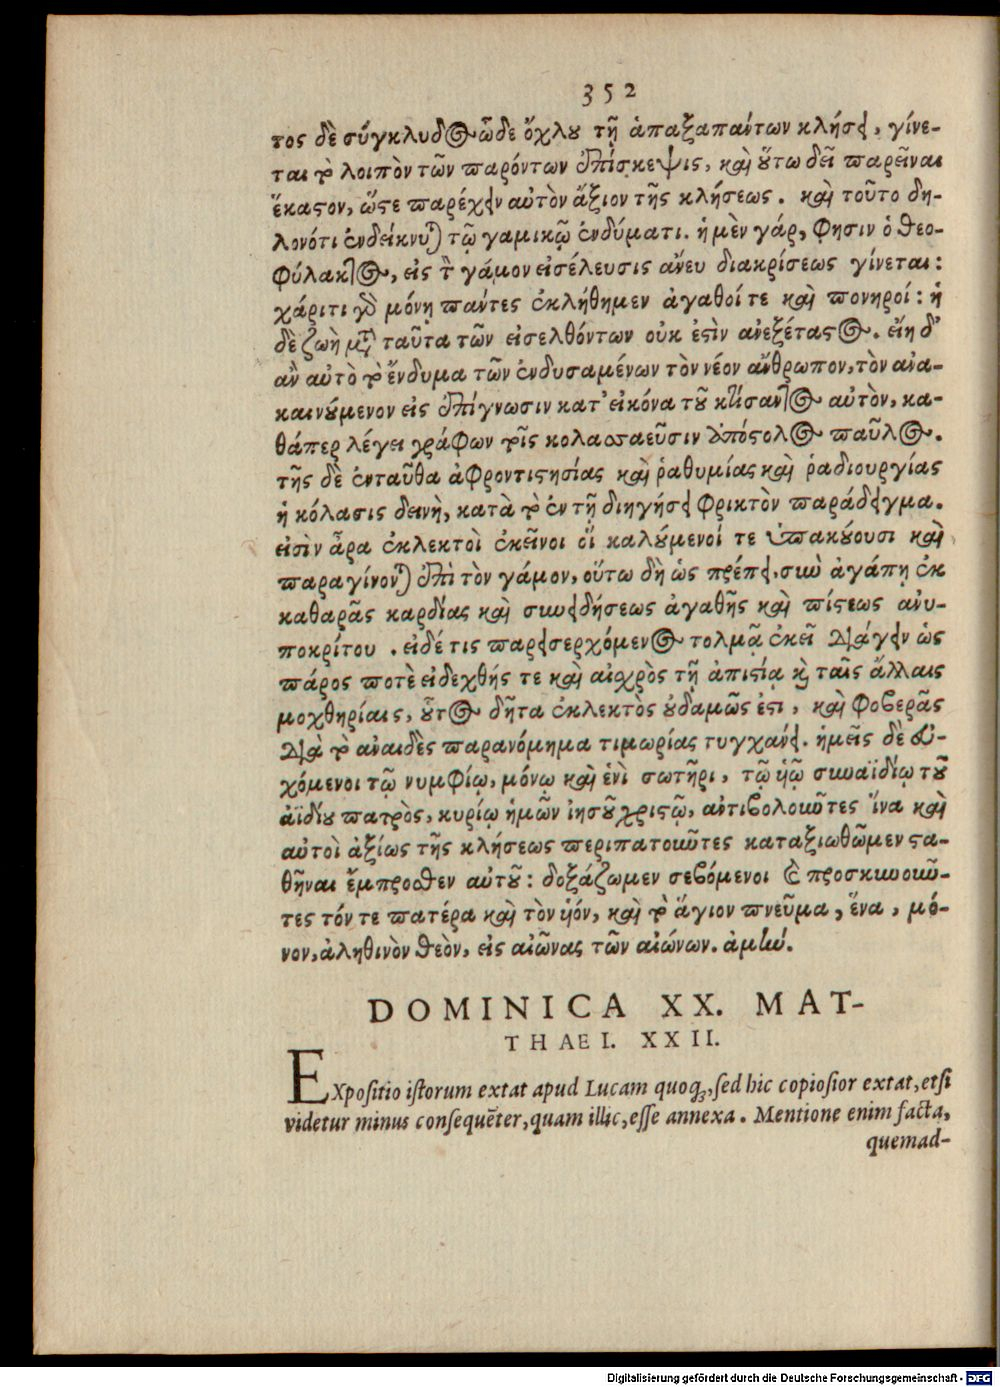 352
τος δὲ σύγκλυδος ὧδε ὄχλου τῇ ἁπαξαπάντων κλήσει, γίνε-
ται τὸ λοιπὸν τῶν παρόντων ἐπίσκεψις, καὶ οὕτω δεῖ παρεῖναι
ἕκαστον, ὥστε παρέχειν αὑτὸν ἄξιον τῆς κλήσεως. καὶ τοῦτο δη-
λονότι ἐνδείκνυται τῷ γαμικῷ ἐνδύματι. ἡ μὲν γάρ, φησιν ὁ θεο-
φύλακτος, εἰς τὸν γάμον εἰσέλευσις ἄνευ διακρίσεως γίνεται:
χάριτι γὰρ μόνῃ πάντες ἐκλήθημεν ἀγαθοί τε καὶ πονηροί: ἡ
δὲ ζωὴ μετὰ ταῦτα τῶν εἰσελθόντων οὐκ ἐστὶν ἀνεξέταστος. εἴη δ'
ἂν αὐτὸ τὸ ἔνδυμα τῶν ἐνδυσαμένων τὸν νέον ἄνθρωπον, τὸν ἀνα-
καινούμενον εἰς ἐπίγνωσιν κατ' εἰκόνα τοῦ κτίσαντος αὐτὸν, κα-
θάπερ λέγει γράφων τοῖς κολασσαεῦσιν ἀπόστολος παῦλος.
τῆς δὲ ἐνταῦθα ἀφροντιστησίας καὶ ῥαθυμίας καὶ ῥαδιουργίας
ἡ κόλασις δεινὴ, κατὰ τὸ ἐν τῇ διηγήσει φρικτὸν παράδειγμα.
εἰσὶν ἆρα ἐκλεκτοὶ ἐκεῖνοι οἳ καλούμενοί τε ὑπακούουσι καὶ
παραγίνονται ἐπὶ τὸν γάμον, οὕτω δὴ ὡς πρέπει, σὺν ἀγάπῃ ἐκ
καθαρᾶς καρδίας καὶ συνειδήσεως ἀγαθῆς καὶ πίστεως ἀνυ-
ποκρίτου. εἰδέ τις παρεισερχόμενος τολμᾷ ἐκεῖ διάγειν ὡς
πάρος ποτὲ εἰδεχθής τε καὶ αἰσχρὸς τῇ ἀπιστίᾳ καὶ ταῖς ἄλλαις
μοχθηρίαις, οὗτος δῆτα ἐκλεκτὸς οὐδαμῶς ἐστι, καὶ φοβερᾶς
διὰ τὸ ἀναιδὲς παρανόμημα τιμωρίας τυγχάνει. ἡμεῖς δὲ εὐ-
χόμενοι τῷ νυμφίῳ, μόνῳ καὶ ἑνὶ σωτῆρι, τῷ ὑῷ συναϊδίῳ τοῦ
ἀϊδίου πατρὸς, κυρίῳ ἡμῶν ἰησοῦ χριστῷ, ἀντιβολοῦντες ἵνα καὶ
αὐτοὶ ἀξίως τῆς κλήσεως περιπατοῦντες καταξιωθῶμεν στα-
θῆναι ἔμπροσθεν αὐτοῦ: δοξάζωμεν σεβόμενοι καὶ προσκυνοῦν-
τες τόν τε πατέρα καὶ τὸν ὑόν, καὶ τὸ ἅγιον πνεῦμα, ἕνα, μό-
νον, ἀληθινὸν θεὸν, εἰς αἰῶνας τῶν αἰώνων. ἀμὴν.
DOMINICA XX. MAT-
THAEI. XXII.
EXpositio istorum extat apud Lucam quoq;, sed hic copiosior extat, etsi
videtur minus consequēter, quam illic, esse annexa. Mentione enim facta,
quemad-
Digitalisierung gefördert durch die Deutsche Forschungsgemeinschaft - DFG